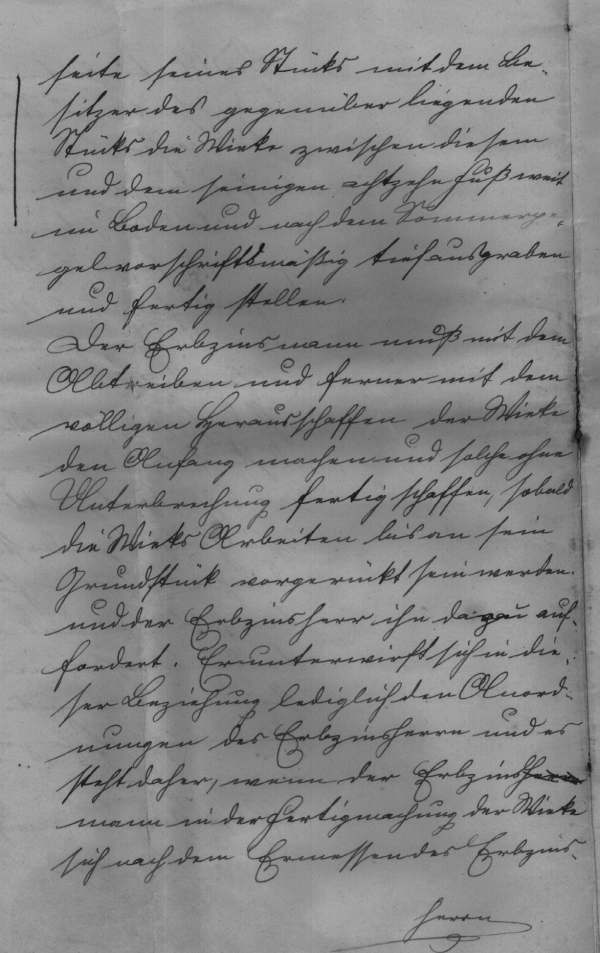 seite seines Stücks mit dem Be-
sitzer des gegenüber liegenden
Stücks die Wieke zwischen diesem
und dem seinigen achtzehn Fuß weit
im Boden und nach dem Sommerpe-
gel vorschriftsmäßig tief ausgraben
und fertig stellen.
Der Erbzinsmann muß mit dem
Abtreiben und ferner mit dem
völligen Herausschaffen der Wieke
den Anfang machen und solche ohne
Unterbrechung fertig schaffen, sobald
die Wieks Arbeiten bis an sein
Grundstück vorgerückt sein werden.
und der Erbzinsherr ihn dazu auf-
fordert. Er unterwirft sich in die-
ser Beziehung lediglich den Anord-
nungen des Erbzinsherrn und es
steht daher, wenn der Erbzins
mann in der Fertigmachung der Wieke
sich nach dem Ermessen des Erbzins-
herrn